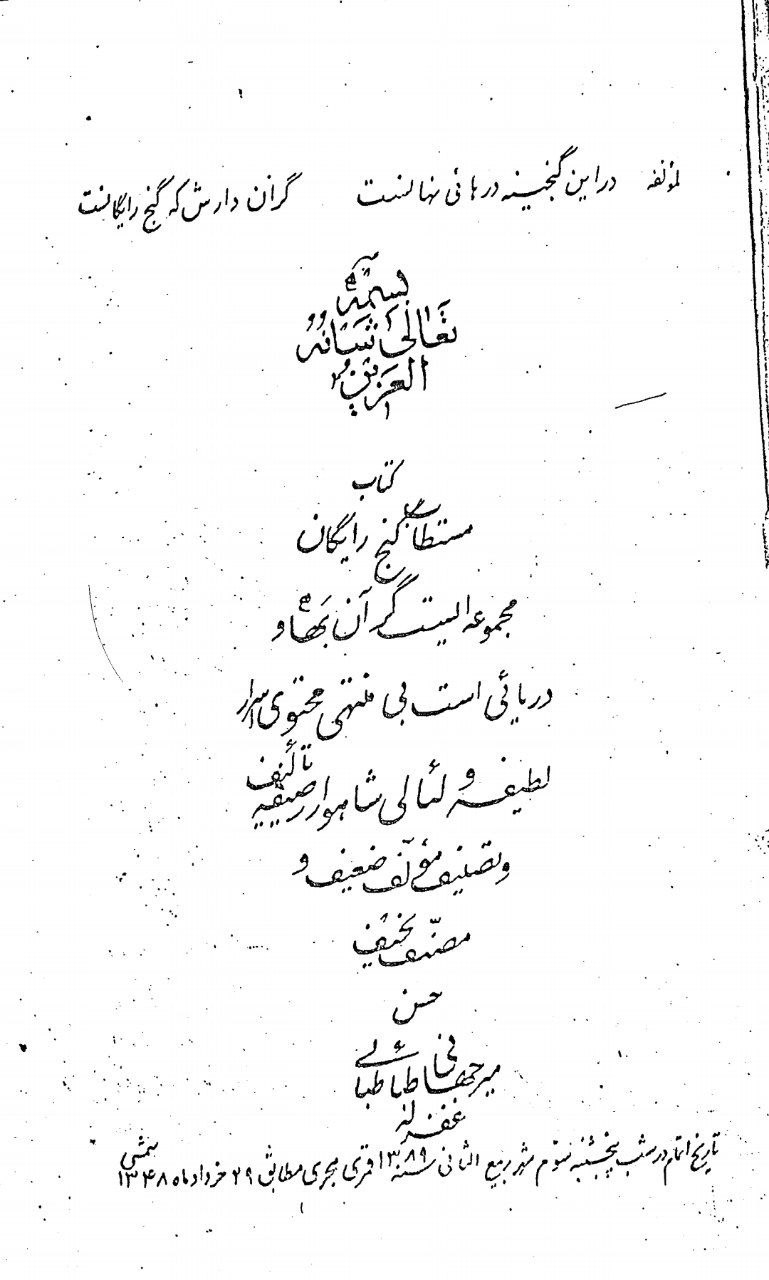 لمؤلفه در این گنجینه درهائی نهانست گران دارش که گنج رایگانست
بسمه
تعالی شانه
العزیز
کتاب
مستطاب گنج رایگان
مجموعه ایست گران بها و
دریائی است بی منتهی محتوی اسرار
لطیفه و لئالی شاهوار رصیفه تألیف
و تصنیف مؤلف ضعیف و
مصنف نحیف
حسن
میرجهانی طباطبائی
غفرله
تاریخ اتمام در شب پنجشنبه سوم شهر ربیع الثانی سنه ۱۳۸۹ قمری هجری مطابق ۲۹ خرداد ماه ۱۳۴۸ شمسی